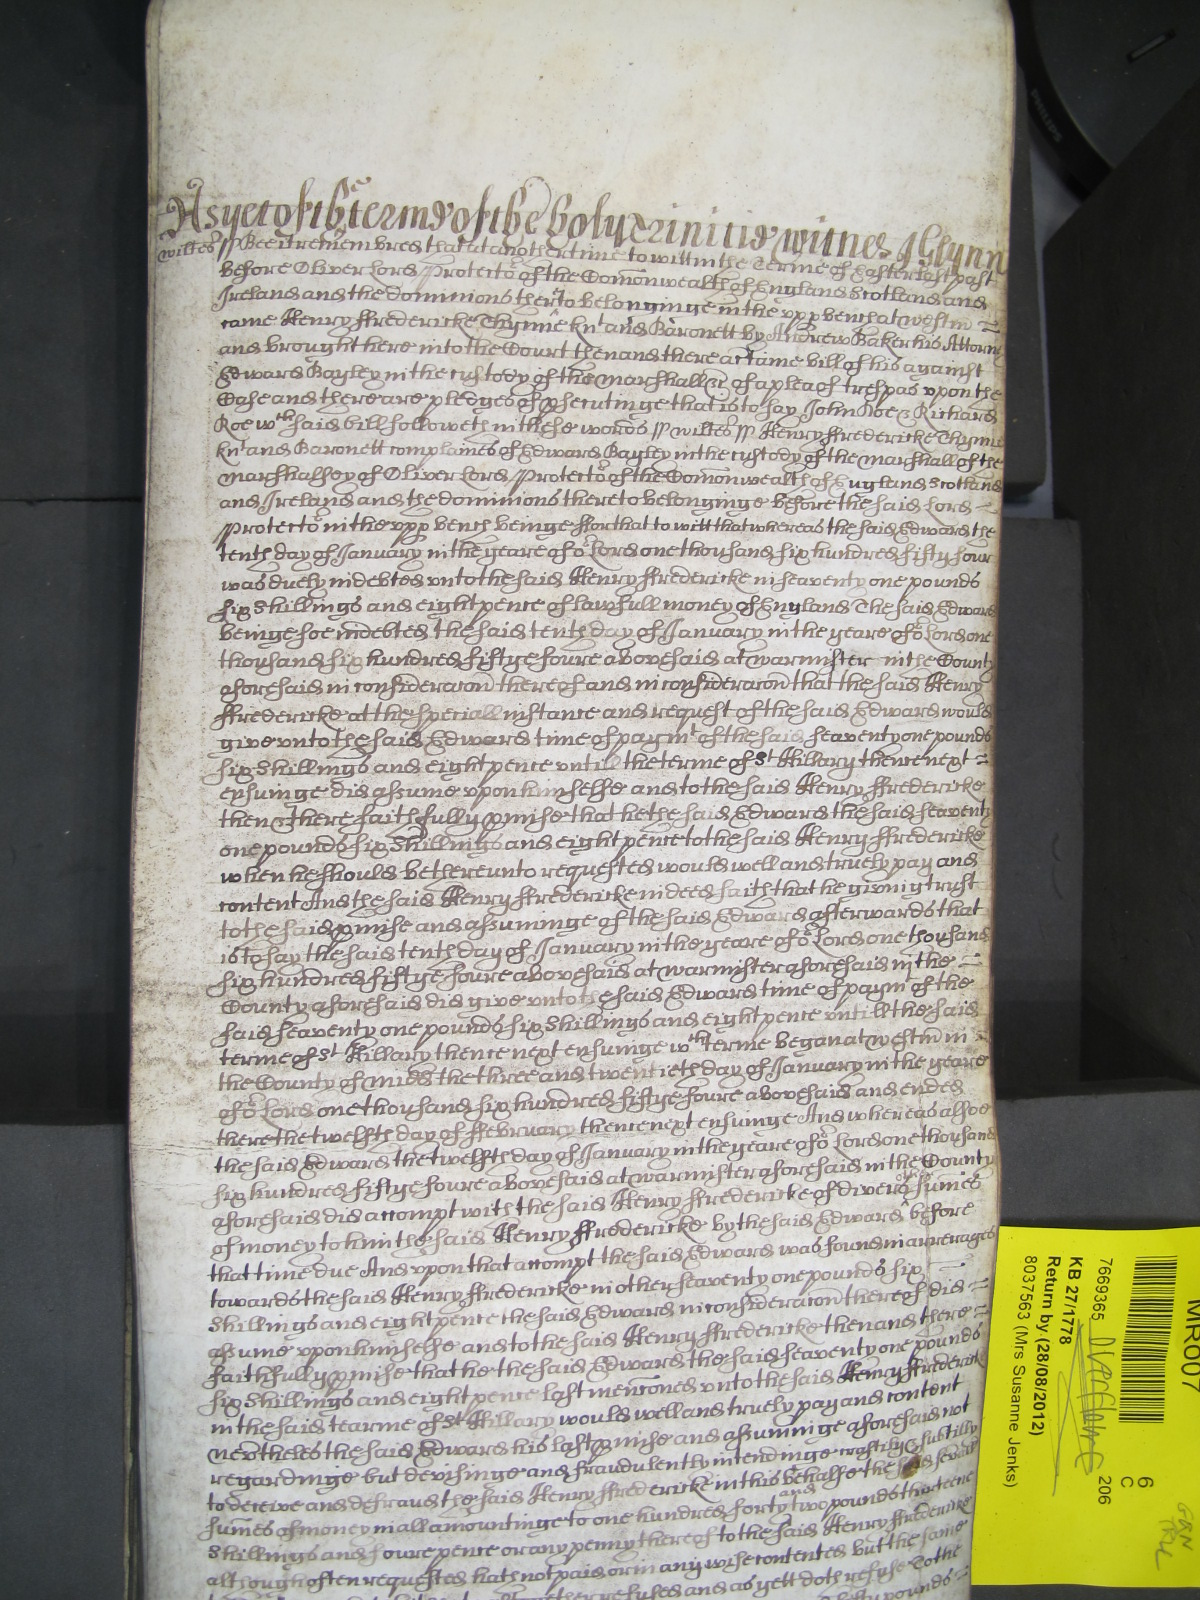 As yet of the terme of the holy Trinitie witnes J Glynn
wiltes ss Bee it remembred that at another time to witt in the Terme of Easter last past
before Oliver Lord Protector of the Comonwealth of England Scotland and
Ireland and the dominions therto belonginge in the upp bench at westm
came Henry ffredericke Thynne knt and Baronett by Andrew Baker his Attorny
and brought here into the Court then and there a certaine bill of his against
Edward Bayley in the custody of the marshall &c of a plea of trespas upon the
Case and there are pledges of psecutinge that is to say John Doe & Richard
Roe wch said bill followeth in these words ss wiltes ss Henry ffredericke Thynne
knt and Baronett complaines of Edward Bayley in the custody of the marshall of the
marshalsey of Oliver Lord Protector of the Comonwealth of England Scotland
and Ireland and the dominions thereto belonginge before the said Lord
Protector in the upp bench beinge ffor that to witt that whereas the said Edward the
tenth day of January in the yeare of or Lord one thousand six hundred fifty four
was duely indebted unto the said Henry ffredericke in seaventy one pounds
six shillings and eight pence of lawfull money of England The said Edward
beinge soe indebted the said tenth day of January in the yeare of or Lord one
thousand six hundred fiftye foure abovesaid at warmister in the County
aforesaid in consideracon thereof and in consideracon that the said Henry
ffredericke at the speciall instance and request of the said Edward would
give unto the said Edward time of paymt of the said seaventy one pounds
six shillings and eight pence untill the terme of St Hillary thence next
ensuinge did assume upon himselfe and to the said Henry ffredericke
then & there faithfully pmise that he the said Edward the said seaventy
one pounds six shillings and eight pence to the said Henry ffredericke
when he should be thereunto requested would well and truely pay and
content And the said Henry ffredericke indeed saith that he giving trust
to the said pmise and assuminge of the said Edward afterwards that
is to say the said tenth day of January in the yeare of or Lord one thousand
six hundred fiftye foure abovesaid at warmister aforesaid in the
County aforesaid did give unto the said Edward time of paym of the
said seaventy one pounds six shillings and eight pence untill the said
terme of St Hillary thence next ensuinge wch terme began at westm in
the County of midd the three and twentieth day of January in the yeare
of or Lord one thousand six hundred fiftye foure abovesaid and ended
there the twelfth day of ffebruary thence next ensuinge And whereas alsoe
the said Edward the twelfth day of January in the yeare of or Lord one thousand
six hundred fiftye foure abovesaid at warmister aforesaid in the County
aforesaid did accompt with the said Henry ffredericke of divers other sumes
of money to him the said Henry ffredericke by the said Edward before
that time due And upon that accompt the said Edward was found in arrerages
towards the said Henry ffredericke in other seaventy one pounds six
shillings and eight pence the said Edward in consideracon thereof did
assume upon himselfe and to the said Henry ffredericke then and there
faithfully pmise that he the said Edward the said seaventy one pounds
six shillings and eight pence last menconed unto the said Henry ffredericke
in the said tearme of St Hillary would well and truely pay and content
nevtheles the said Edward his last pmise and assuminge aforesaid not
regardinge but devisinge and fraudulently intendinge craftily & subtilly
to deceive and defraud the said Henry ffredericke in this behalfe the said sevall
sumes of money in all amountinge to one hundred forty and two pounds thirteene
shillings and foure pence or any penny thereof to the said Henry ffredericke
although often requested hath not paid or in any wise contented but the same
refused and as yett doth refuse To the
fifty pounds
PHILIPS
MR007
6
C
7669365
206
KB 27/1778
Return by (28/08/2012)
8037563 (Mrs Susanne Jenks)